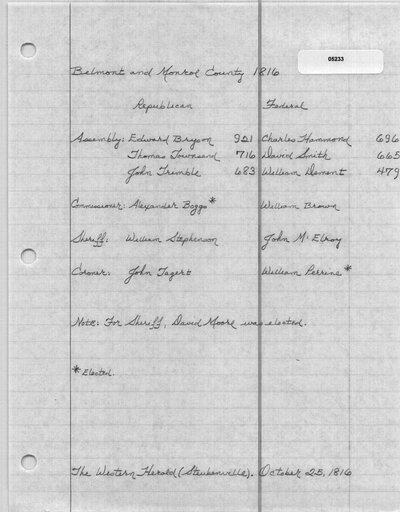 05233
Belmont and Monroe County 1816
Republican Federal
Assembly: Edward Bryson 921 Charles Hammond 696
Thomas Townsend 716 David Smith 665
John Trimble 683 William Dement 479
Commissioner: Alexander Boggs* William Brown
Sheriff: William Stephenson John McElroy
Coroner: John Tagert William Perrine *
Note: For Sheriff, David Moore was elected.
* Elected.
The Western Herald (Steubenville). October 25, 1816